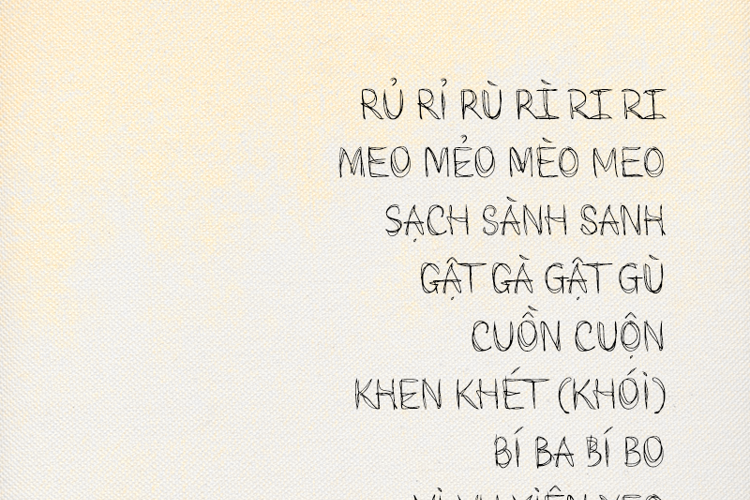 RỦ RỈ RÙ RÌ RI RI
MEO MẺO MÈO MEO
SẠCH SÀNH SANH
GẬT GÀ GẬT GÙ
CUỒN CUỘN
KHEN KHÉT (KHÓI)
BÍ BA BÍ BO